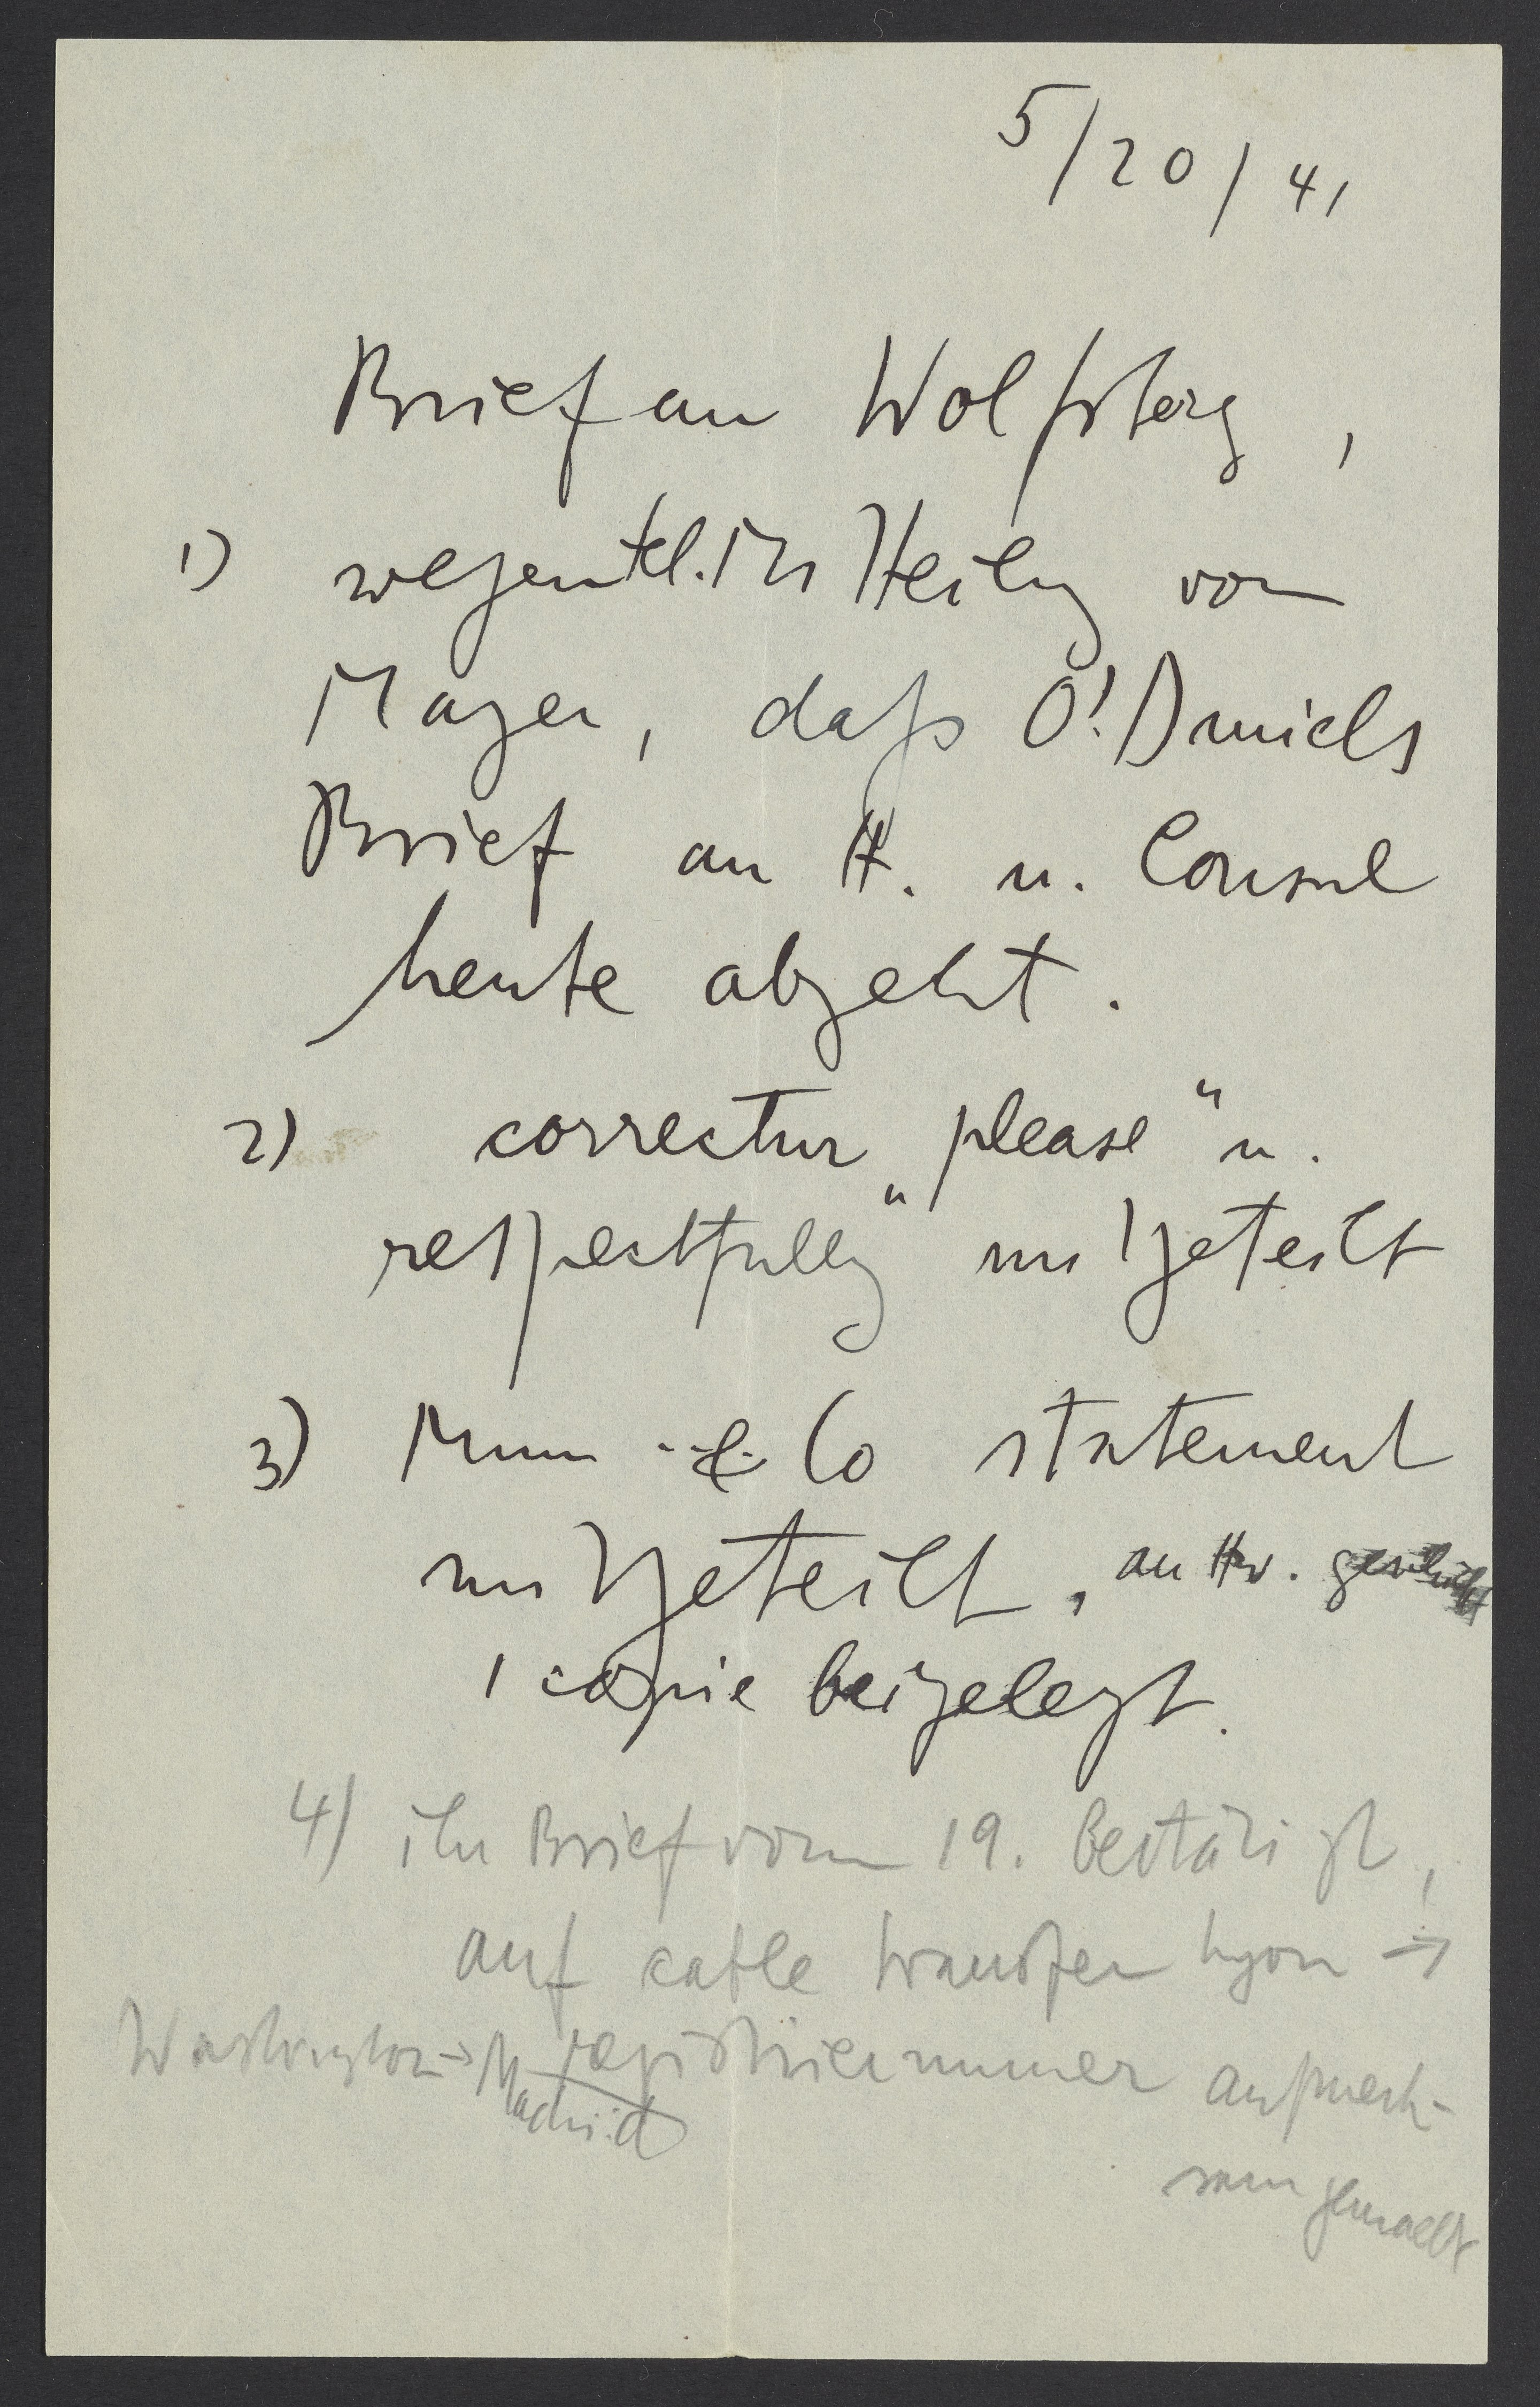 5/20/41
Brief an Wolfsberg,
1) wesentl. Mitteilg von
Mayer, dass O'Daniels
Brief an H. u. Consul
heute abgeht.
2) correctur „please" u.
„respectfully" mitgeteilt
3) Mum & Co statement
mitgeteilt, an Hr. geschickt
1 copie beigelegt.
4) ihr Brief vom 19. bestätigt,
auf cable transfer Lyon →
Washington → Madrid registriernummer aufmerk-
sam gemacht